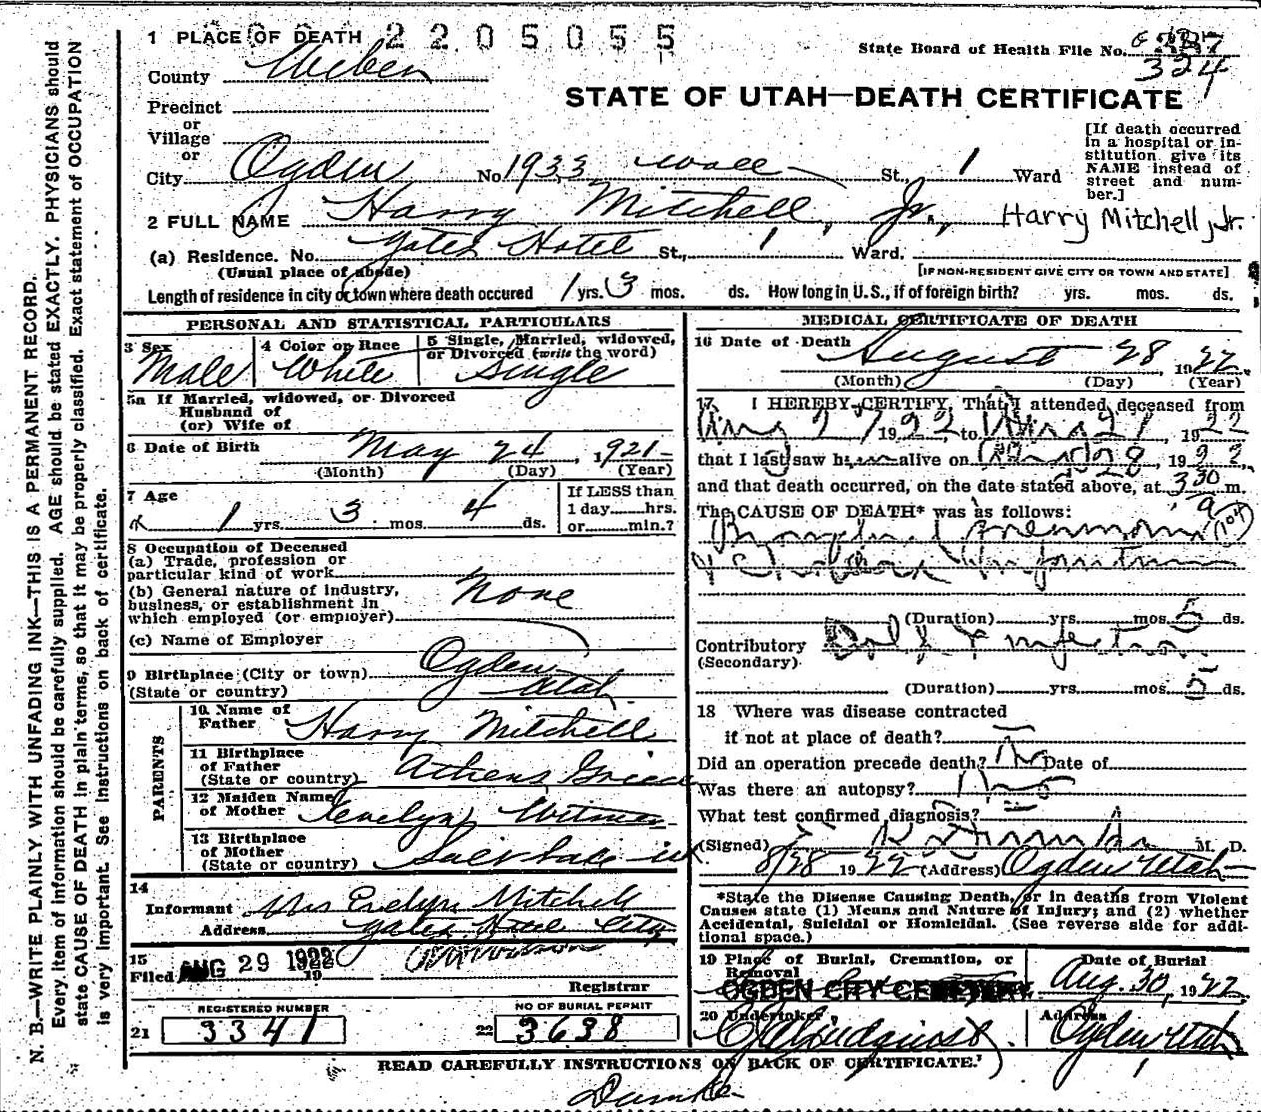 1 PLACE OF DEATH 2205055
State Board of Health File No. 324
County Weber
STATE OF UTAH—DEATH CERTIFICATE
Precinct
or
Village
or
City Ogden No. 1933 Wall St., 1 Ward
[If death occurred in a hospital or in-
stitution give its
NAME instead of
street and num-
ber.]
2 FULL NAME Harry Mitchell, Jr., Harry Mitchell, Jr.
(a) Residence. No. Yates Hotel St., 1 Ward.
(Usual place of abode) [IF NON-RESIDENT GIVE CITY OR TOWN AND STATE]
Length of residence in city or town where death occured 1 yrs. 3 mos. ds. How long in U.S., if of foreign birth? yrs. mos. ds.
PERSONAL AND STATISTICAL PARTICULARS
3 Sex Male
4 Color or Race White
5 Single, Married, widowed,
or Divorced (write the word)
Single
5a If Married, widowed, or Divorced
Husband of
(or) Wife of
6 Date of Birth May 24, 1921
(Month) (Day) (Year)
7 Age 1 yrs. 3 mos. 4 ds.
If LESS than
1 day hrs.
or min.?
8 Occupation of Deceased
(a) Trade, profession or
particular kind of work
(b) General nature of industry,
business, or establishment in
which employed (or employer) None
(c) Name of Employer
9 Birthplace (City or town) Ogden
(State or country) Utah
PARENTS
10 Name of
Father Harry Mitchell
11 Birthplace
of Father
(State or country) Athens Greece
12 Maiden Name
of Mother Evelyn
13 Birthplace
of Mother
(State or country) Salt Lake
14
Informant Mrs Evelyn Mitchell
Address Yates Hotel City
15
Filed AUG 29 1922 19
Registrar
REGISTERED NUMBER
21 3341
NO OF BURIAL PERMIT
22 3638
MEDICAL CERTIFICATE OF DEATH
16 Date of Death August 28 1922
(Month) (Day) (Year)
17 I HEREBY CERTIFY, That I attended deceased from
Aug 27 1922 to Aug 1922
that I last saw him alive on Aug 28, 1922
and that death occurred, on the date stated above, at 3 30 a m.
The CAUSE OF DEATH* was as follows:
Bronchial Pneumonia 104
(Duration) yrs. mos. 5 ds.
Contributory infection
(Secondary)
(Duration) yrs. mos. 5 ds.
18 Where was disease contracted
if not at place of death?
Did an operation precede death? No Date of
Was there an autopsy? No
What test confirmed diagnosis?
(Signed) M. D.
8/28 1922 (Address) Ogden Utah
*State the Disease Causing Death, or in deaths from Violent
Causes state (1) Means and Nature of Injury; and (2) whether
Accidental, Suicidal or Homicidal. (See reverse side for addi-
tional space.)
19 Place of Burial, Cremation, or
Removal
OGDEN CITY CEMETERY
Date of Burial
Aug. 30, 1922
20 Undertaker
Address
Ogden Utah
READ CAREFULLY INSTRUCTIONS ON BACK OF CERTIFICATE.
N. B.—WRITE PLAINLY WITH UNFADING INK—THIS IS A PERMANENT RECORD.
Every item of information should be carefully supplied. AGE should be stated EXACTLY. PHYSICIANS should
state CAUSE OF DEATH in plain terms, so that it may be properly classified. Exact statement of OCCUPATION
is very important. See instructions on back of certificate.